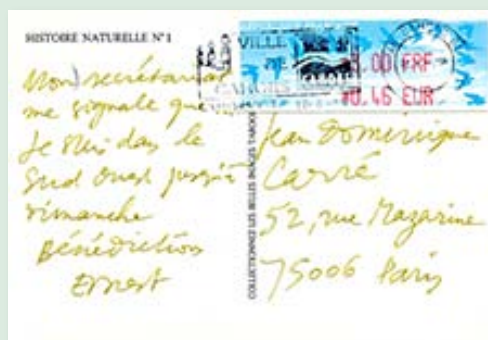 HISTOIRE NATURELLE N°1
VILLE
3.00 FRF
0,46 EUR
Mon secrétariat
me signale que
Je suis dans le
Sud Ouest jusqu'à
dimanche
Bénédiction
Ernest
COLLECTIONNEZ LES BELLES IMAGES
Jean Dominique
Carré
52, rue Mazarine
75006 Paris